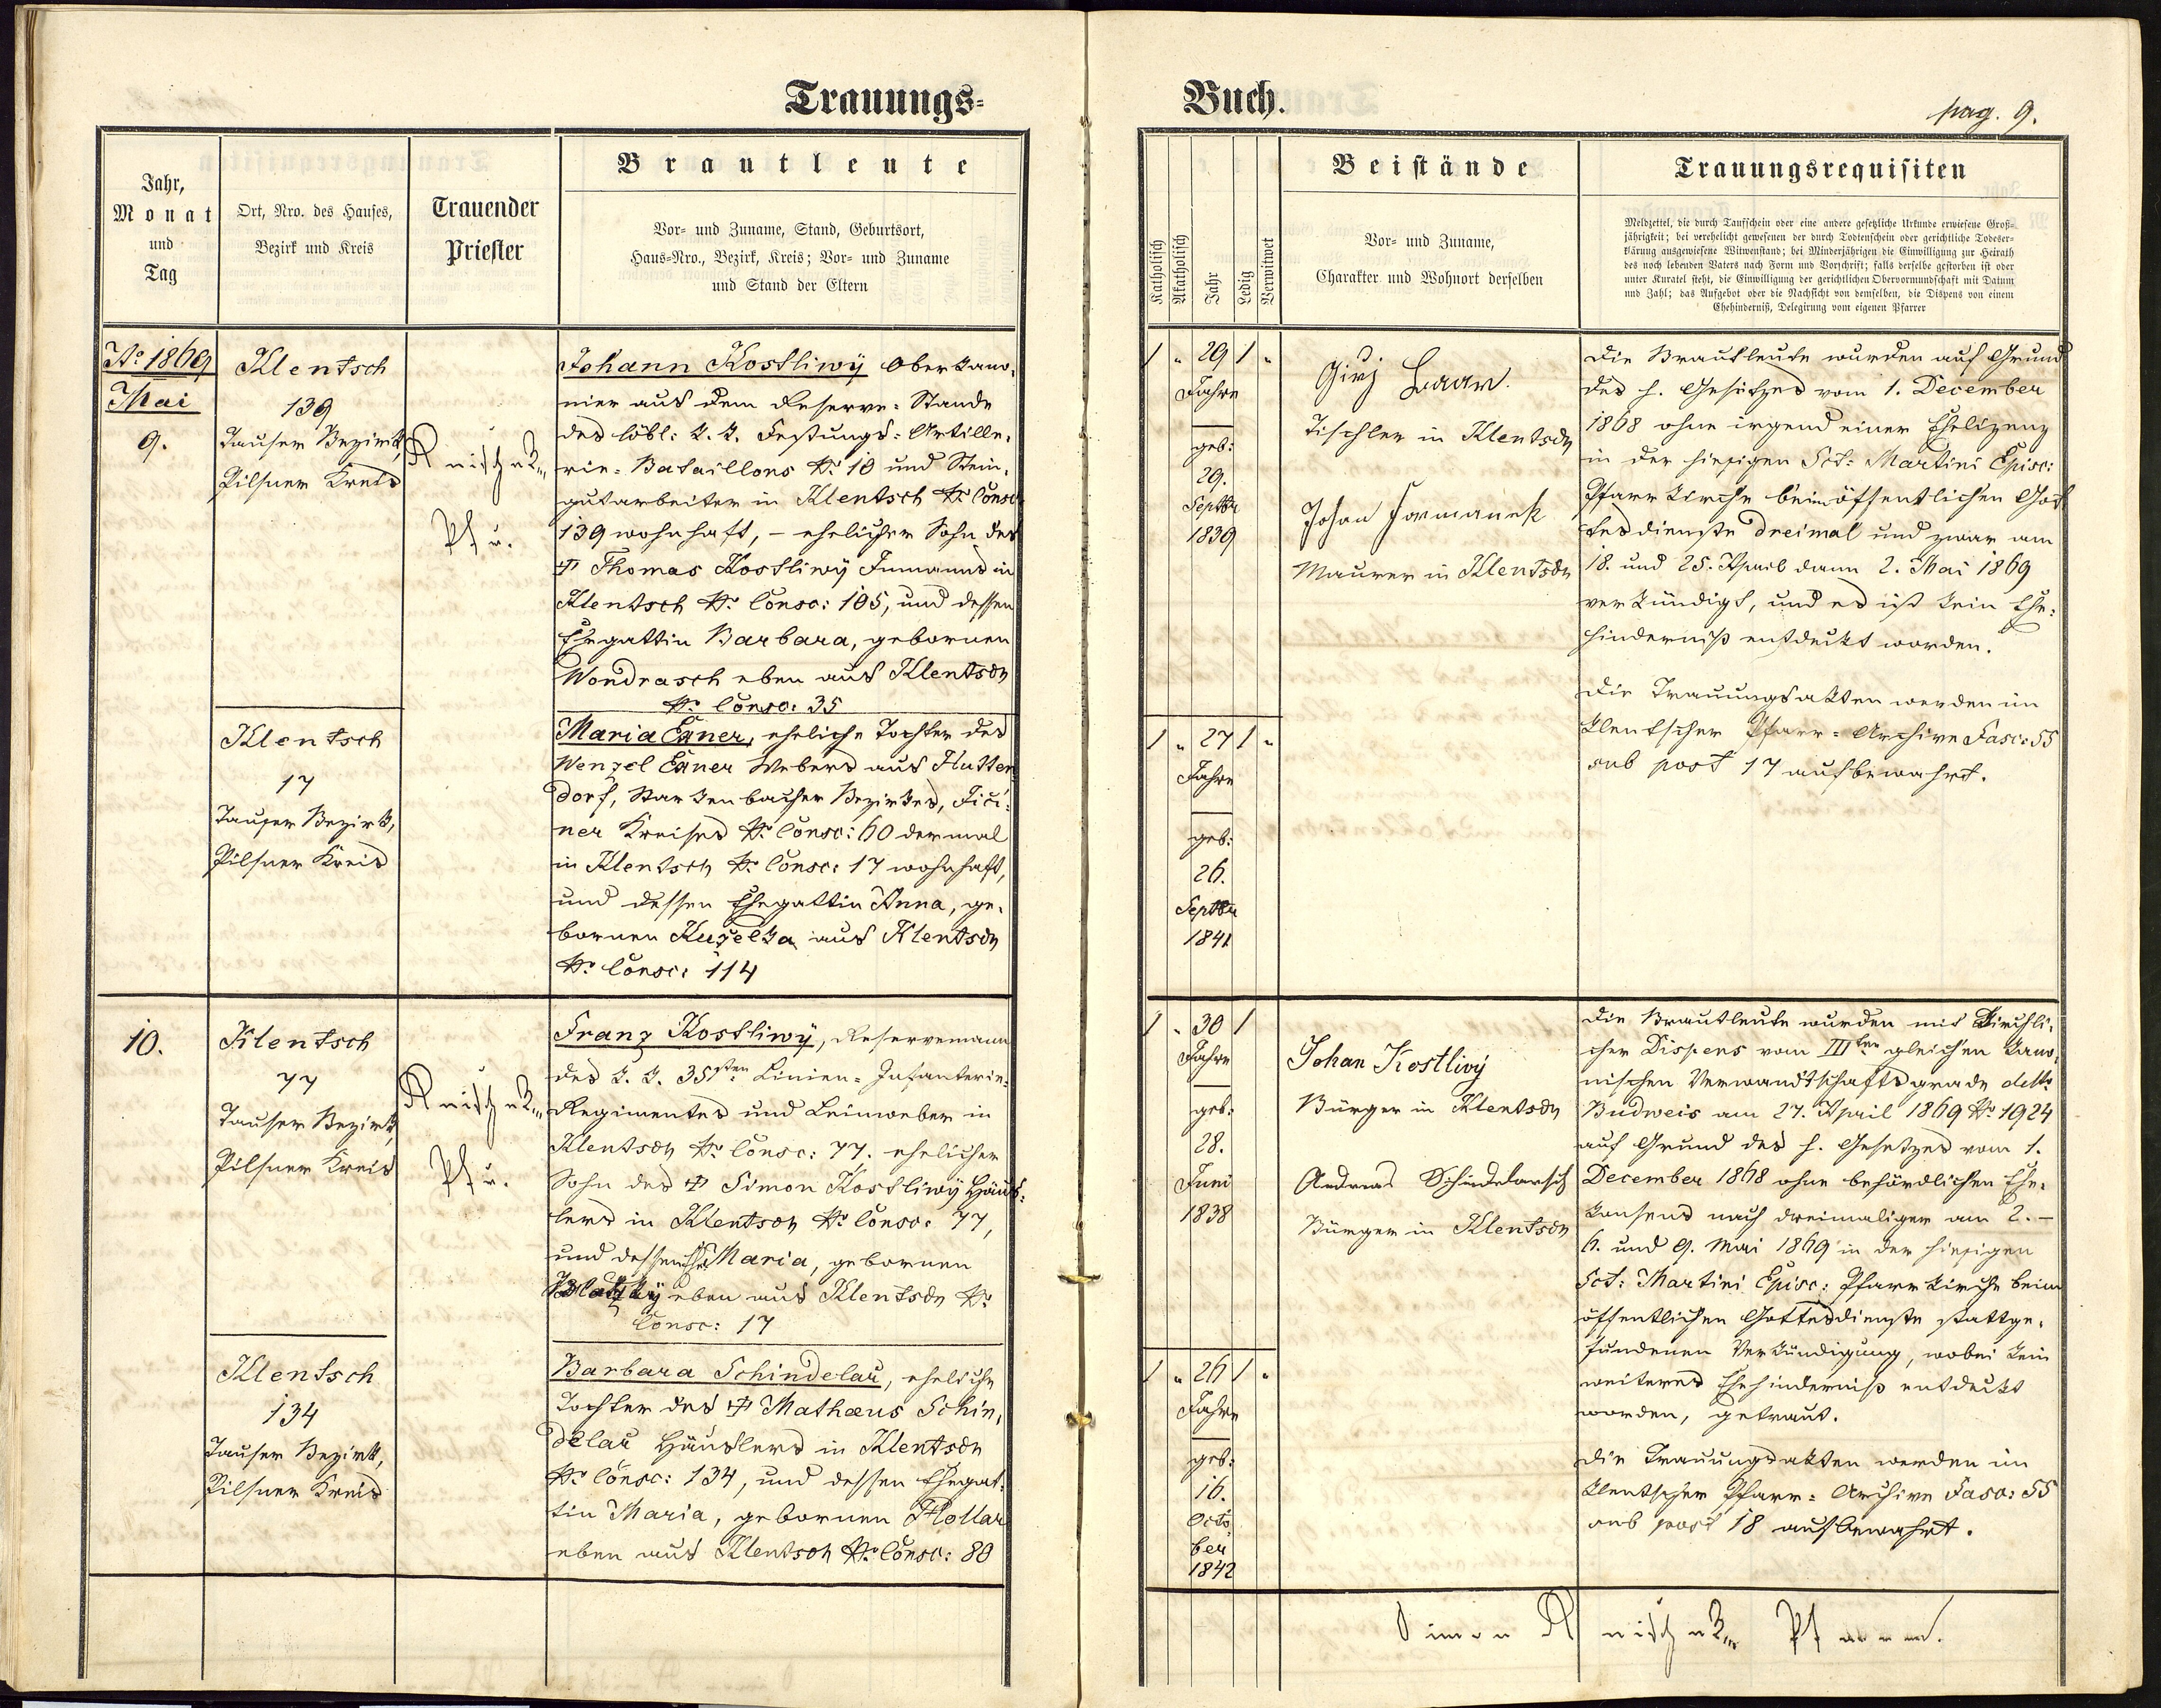 Trauungs=
Buch.
pag. 9.
Jahr,
Monat
und
Tag
Ort, Nro. des Hauses,
Bezirk und Kreis
Trauender
Priester
Brautleute
Vor- und Zuname, Stand, Geburtsort,
Haus-Nro., Bezirk, Kreis; Vor- und Zuname
und Stand der Eltern
Katholisch
Akatholisch
Jahr
Ledig
Verwitwet
Beistände
Vor- und Zuname,
Charakter und Wohnort derselben
Trauungsrequisiten
Meldzettel, die durch Taufschein oder eine andere gesetzliche Urkunde erwiesene Groß-
jährigkeit; bei verehelicht gewesenen der durch Todtenschein oder gerichtliche Todeser-
klärung ausgewiesene Witwenstand; bei Minderjährigen die Einwilligung zur Heirath
des noch lebenden Vaters nach Form und Vorschrift; falls derselbe gestorben ist oder
unter Kuratel steht, die Einwilligung der gerichtlichen Obervormundschaft mit Datum
und Zahl; das Aufgebot oder die Nachsicht von demselben, die Dispens von einem
Ehehinderniß, Delegirung vom eigenen Pfarrer
Ao 1869
Mai
9.
Klentsch
139
Tauser Bezirk,
Pilsner Kreis
Pfr.
Johann Kostliwý Oberkano-
nier aus dem Reserve-Stande
des löbl: k. k. Festungs-Artille-
rie-Bataillons No 10 und Stein-
gutarbeiter in Klentsch No Consc
139 wohnhaft, – ehelicher Sohn des
† Thomas Kostliwý Inmanns in
Klentsch No Consc: 105, und dessen
Ehegattin Barbara, gebornen
Wondrasch eben aus Klentsch
No Consc: 35
Klentsch
17
Tauser Bezirk,
Pilsner Kreis
Maria Exner, eheliche Tochter des
Wenzel Exner Webers aus Hutten
dorf, Starkenbacher Bezirkes, Jiči-
ner Kreises No Consc: 60 dermal
in Klentsch No Consc: 17 wohnhaft,
und dessen Ehegattin Anna, ge-
bornen Kuželka aus Klentsch
No Consc: 114
1 " 29 1 "
Jahre
geb:
29.
Septbr
1839
Jirj
Tischler in Klentsch
Johan Formanek
Maurer in Klentsch
Die Brautleute wurden auf Grund
des h. Gesetzes vom 1. December
1868 ohne irgend einer Ehelizenz
in der hiesigen Sct: Martini Episc:
Pfarrkirche beim öffentlichen Got
tesdienste dreimal und zwar am
18. und 25. April dann 2. Mai 1869
verkündigt, und es ist kein Ehe-
hinderniß entdeckt worden.
Die Trauungsakten werden im
Klentscher Pfarr-Archive Fasc: 55
sub post 17 aufbewahrt.
1 " 27 1 "
Jahre
geb:
26.
Septbr
1841
10.
Klentsch
77
Tauser Bezirk,
Pilsner Kreis
Pfr.
Franz Kostliwý, Reservemann
des k. k. 35sten Linien-Infanterie-
Regimentes und Leinweber in
Klentsch No Consc: 77. ehelicher
Sohn des † Simon Kostliwý Häus-
lers in Klentsch No Consc: 77,
und dessen Maria, gebornen
eben aus Klentsch No
Consc: 17
Klentsch
134
Tauser Bezirk,
Pilsner Kreis
Barbara Schindelař, eheliche
Tochter des † Mathæus Schin-
delař Häuslers in Klentsch
No Consc: 134, und dessen Ehegat-
tin Maria, gebornen Hollar
eben aus Klentsch No Consc: 80
1 " 30 1
Jahre
geb:
28.
Juni
1838
Johan Kostlivý
Bürger in Klentsch
Andreas Schindelarsch
Bürger in Klentsch
Die Brautleute wurden mit Kirchli-
cher Dispens vom IIIten gleichen kano-
nischen Verwandtschaftsgrade ddto
Budweis am 27. April 1869 No 1924
auf Grund des h. Gesetzes vom 1.
December 1868 ohne behördlichen Ehe-
konsens nach dreimaliger am 2. –
6. und 9. Mai 1869 in der hiesigen
Sct: Martini Episc: Pfarrkirche beim
öffentlichen Gottesdienste stattge-
fundenen Verkündigung, wobei kein
weiteres Ehehinderniß entdeckt
worden, getraut.
Die Trauungsakten werden im
Klentscher Pfarr-Archive Fasc: 55
sub post 18 aufbewahrt.
1 " 26 1 "
Jahre
geb:
16.
Octo
ber
1842
Simon Pfarrer.